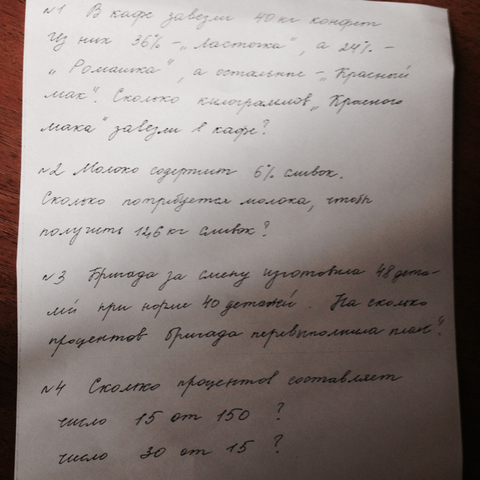 №1 В кафе завезли 40 кг конфет
Из них 36% - „Ласточка", а 24% -
„Ромашка", а остальные - „Красный
мак". Сколько килограммов „Красного
мака" завезли в кафе?
№2 Молоко содержит 6% сливок.
Сколько потребуется молока, чтобы
получить 126 кг сливок?
№3 Бригада за смену изготовила 48 дета-
лей при норме 40 деталей. На сколько
процентов бригада перевыполнила план?
№4 Сколько процентов составляет
число 15 от 150 ?
число 30 от 15 ?